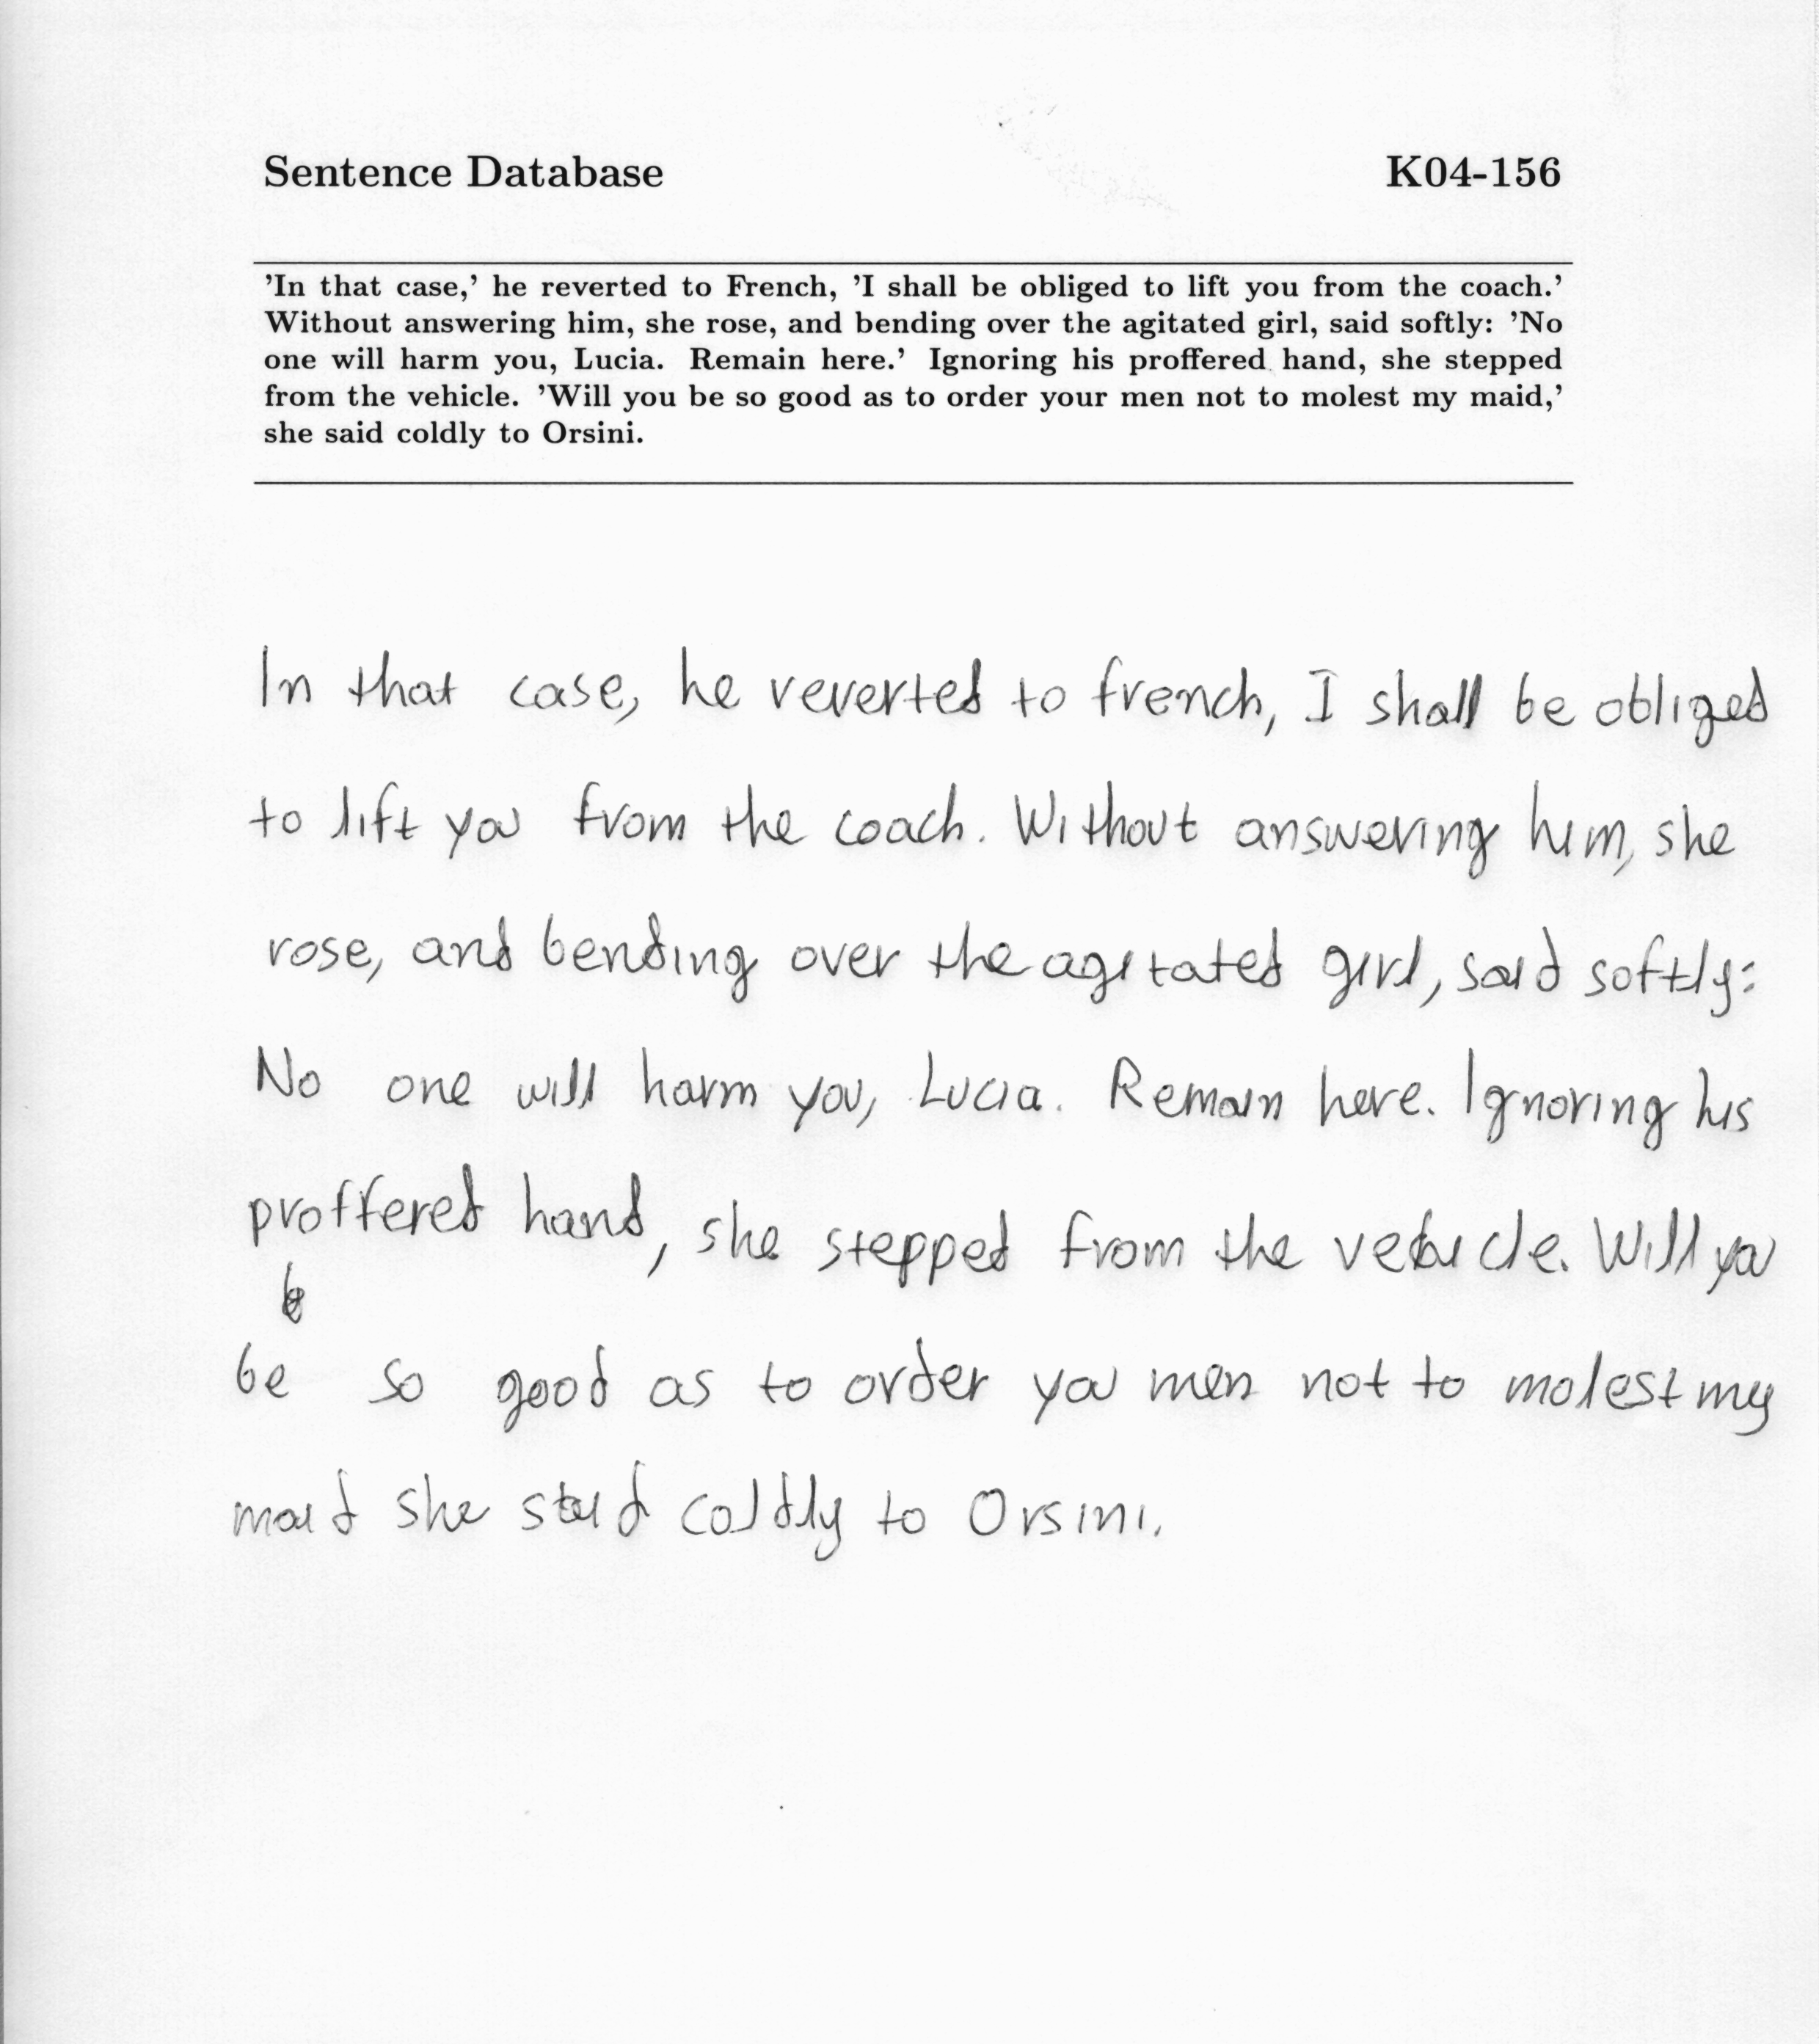 Sentence Database K04-156
'In that case,' he reverted to French, 'I shall be obliged to lift you from the coach.'
Without answering him, she rose, and bending over the agitated girl, said softly: 'No
one will harm you, Lucia. Remain here.' Ignoring his proffered hand, she stepped
from the vehicle. 'Will you be so good as to order your men not to molest my maid,'
she said coldly to Orsini.
In that case, he reverted to french, I shall be obliged
to lift you from the coach. Without answering him, she
rose, and bending over the agitated girl, said softly:
No one will harm you, Lucia. Remain here. Ignoring his
proffered hand, she stepped from the vehicle. Will you
be so good as to order you men not to molest my
maid she said coldly to Orsini.